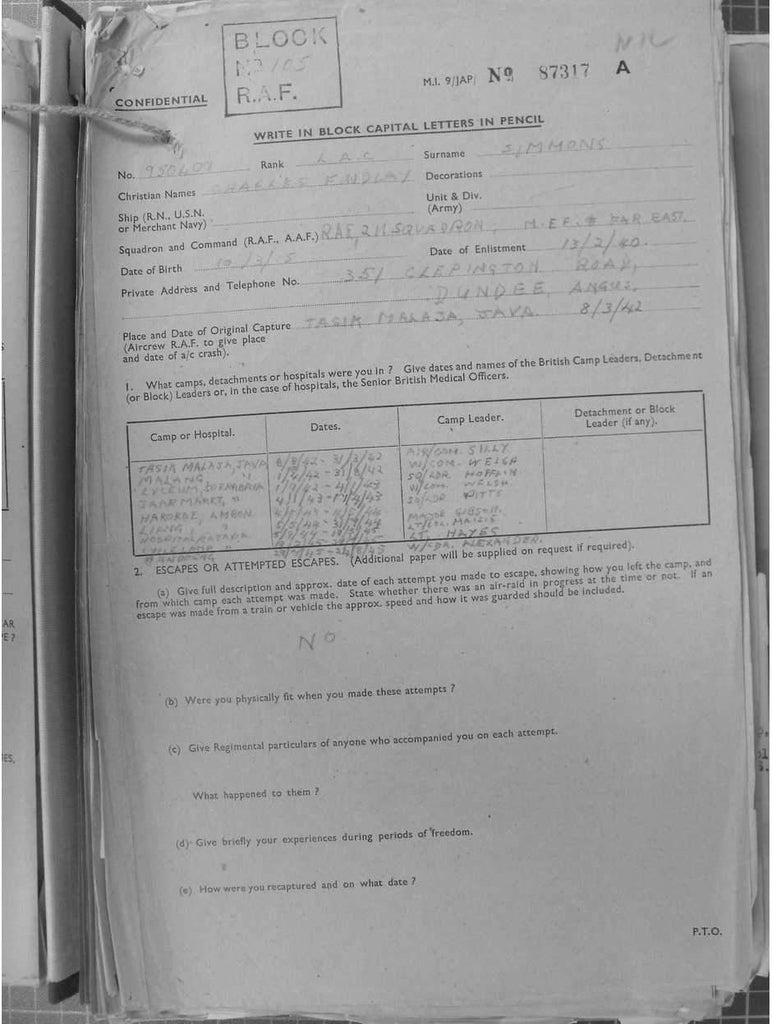 BLOCK
No 105
R.A.F.
NIL
M.I. 9/JAP/ No 87317 A
CONFIDENTIAL
WRITE IN BLOCK CAPITAL LETTERS IN PENCIL
No. Rank L.A.C Surname SIMMONS
Christian Names CHARLES FINDLAY Decorations
Ship (R.N., U.S.N. or Merchant Navy) Unit & Div. (Army)
Squadron and Command (R.A.F., A.A.F.) RAF, 211 SQUADRON, M.E.F. & FAR EAST.
Date of Birth Date of Enlistment 13/2/40.
Private Address and Telephone No. 351 CLEPINGTON ROAD,
DUNDEE, ANGUS.
Place and Date of Original Capture TASIK MALAJA, JAVA. 8/3/42
(Aircrew R.A.F. to give place
and date of a/c crash).
1. What camps, detachments or hospitals were you in ? Give dates and names of the British Camp Leaders, Detachment
(or Block) Leaders or, in the case of hospitals, the Senior British Medical Officers.
Camp or Hospital. Dates. Camp Leader. Detachment or Block Leader (if any).
TASIK MALAJA, JAVA 8/3/42 - 31/3/42 AIR/COM. SILLY
MALANG, 1/4/42 - 31/8/42 W/COM. WELSH
LYCEUM, SOERABAJA
JAARMARKT, " SQ/LDR PITTS
HAROEKOE, AMBON. MAJOR GIBSON.
LIANG, "
HOSPITAL LT. HAYES
W/CDR. ALEXANDER.
2. ESCAPES OR ATTEMPTED ESCAPES. (Additional paper will be supplied on request if required).
(a) Give full description and approx. date of each attempt you made to escape, showing how you left the camp, and
from which camp each attempt was made. State whether there was an air-raid in progress at the time or not. If an
escape was made from a train or vehicle the approx. speed and how it was guarded should be included.
NO
(b) Were you physically fit when you made these attempts ?
(c) Give Regimental particulars of anyone who accompanied you on each attempt.
What happened to them ?
(d) Give briefly your experiences during periods of freedom.
(e) How were you recaptured and on what date ?
P.T.O.